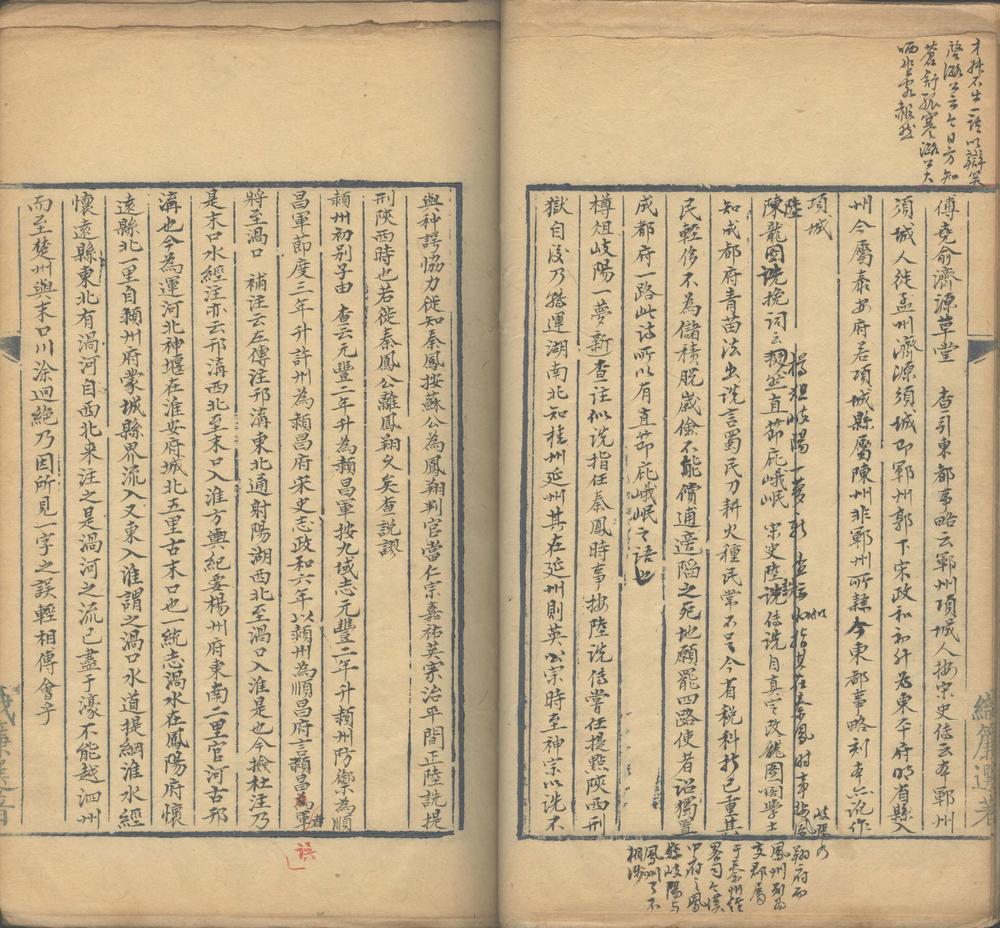 才叔不出一語以辯矣
蒼舒孤寒潞公大
哂此意赧然
傅堯俞濟源草堂　查引東都事略云鄆州項城人按宋史傳云本鄆州
須城人徙孟州濟源須城即鄆州郭下宋政和初升為東平府明省縣入
州今屬泰安府若項城縣屬陳州非鄆州所隸今東都事略刻本亦訛作
項城
陸
陳龍圖詵挽詞云挺然直節庇峨岷　宋史陸詵傳詵自真定改龍圖閣學士
樽俎岐陽一夢新
知成都府青苗法出詵言蜀民刀耕火種民常不足今省稅科折已重其
民輕侈不為儲積脫歲儉不能償逋適陷之死地願罷四路使者詔獨置
成都府一路此詩所以有直節庇峨岷之語也
樽俎岐陽一夢新查注似詵指任秦鳳時事按陸詵傳嘗任提點陝西刑
獄自後乃歷運湖南北知桂州延州其在延州則英宗時至神宗以詵不
岐陽乃
鳳翔府而
鳳州別為
支郡屬
于秦州
中府之鳳
縣岐陽與
鳳州了不
相涉
織簾選著
與种諤協力徙知秦鳳按蘇公為鳳翔判官當仁宗嘉祐英宗治平間正陸詵提
刑陝西時也若徙秦鳳公離鳳翔久矣查說謬
潁州初別子由　查云元豐二年升為潁昌軍按九域志元豐二年升潁州防禦為順
昌軍節度三年升許州為潁昌府宋史志政和六年以潁州為順昌府言潁昌為軍
者
誤
將至渦口　補注云左傳注邗溝東北通射陽湖西北至渦口入淮是也今撿杜注乃
是末口水經注亦云邗溝西北至末口入淮方輿紀要楊州府東南二里官河古邗
溝也今為運河北神堰在淮安府城北五里古末口也一統志渦水在鳳陽府懷
遠縣北一里自潁州府蒙城縣界流入又東入淮謂之渦口水道提綱淮水經
懷遠縣東北有渦河自西北來注之是渦河之流已盡于濠不能越泗州
而至楚州與末口川涂迥絶乃因所見一字之誤輕相傅會乎